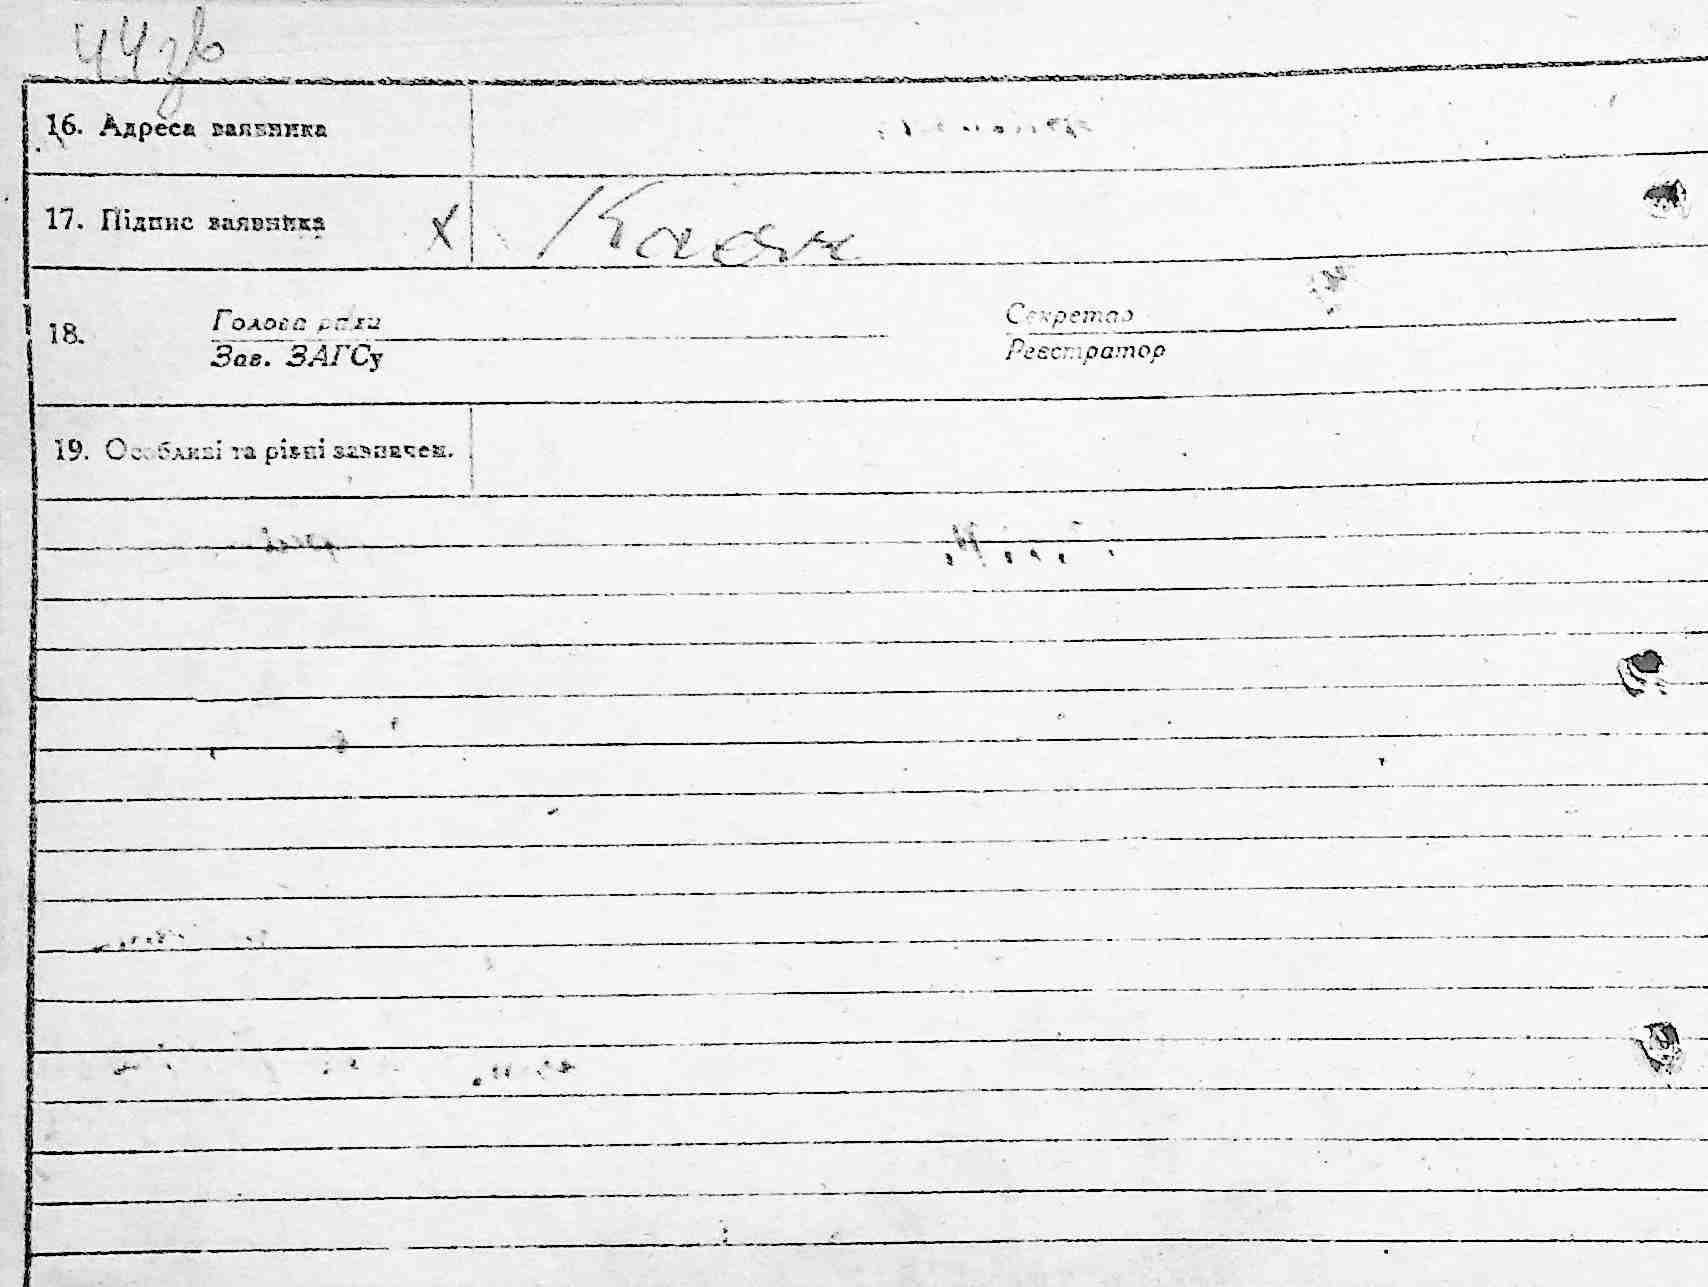 44зв
16. Адреса заявника
17. Підпис заявника х
18. Голова ради Секретар
Зав. ЗАГСу Реєстратор
19. Особливі та різні зазначен.